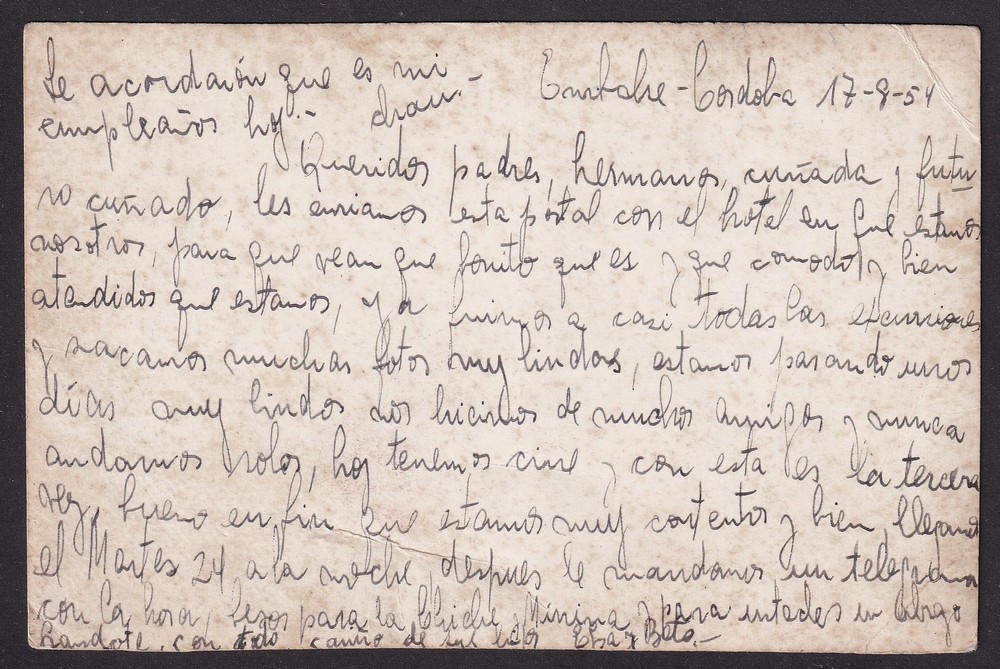 Se acordarón que es mi
cumpleaños hoy.- chau.-
Embalse - Cordoba 17-8-54
Queridos padres, hermanos, cuñada y futu
ro cuñado, les enviamos esta postal con el hotel en que estamos
nosotros, para que vean que bonito que es y que comodo y bien
atendidos que estamos, ya fuimos a casi todas las excursiones
y sacamos muchas fotos muy lindas, estamos pasando unos
días muy lindos nos hicimos de muchos amigos y nunca
andamos solos, hoy tenemos cine y con esta es la tercera
vez, bueno en fin que estamos muy contentos y bien, llegamos
el Martes 24 a la noche, despues le mandamos un telegrama
con la hora, besos para la Chiche, Minina y para ustedes un abrazo
con todo cariño de sus hijos Beto.-